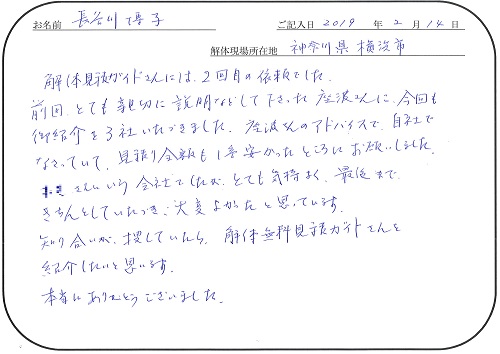 お名前 長谷川 淳子 ご記入日 2019 年 2 月 14 日
解体現場所在地 神奈川県横浜市
解体見積ガイドさんには、2回目の依頼でした。
前回、とても親切に説明などして下さった座波さんに、今回も
御紹介を3社いただきました。座波さんのアドバイスで、自社で
なさっていて、見積り金額も1番安かったところにお願いしました。
さんという会社でしたが、とても気持よく、最後まで
きちんとしていただき、大変よかったと思っています。
知り合いが、探していたら、解体無料見積ガイドさんを
紹介したいと思います。
本当にありがとうございました。